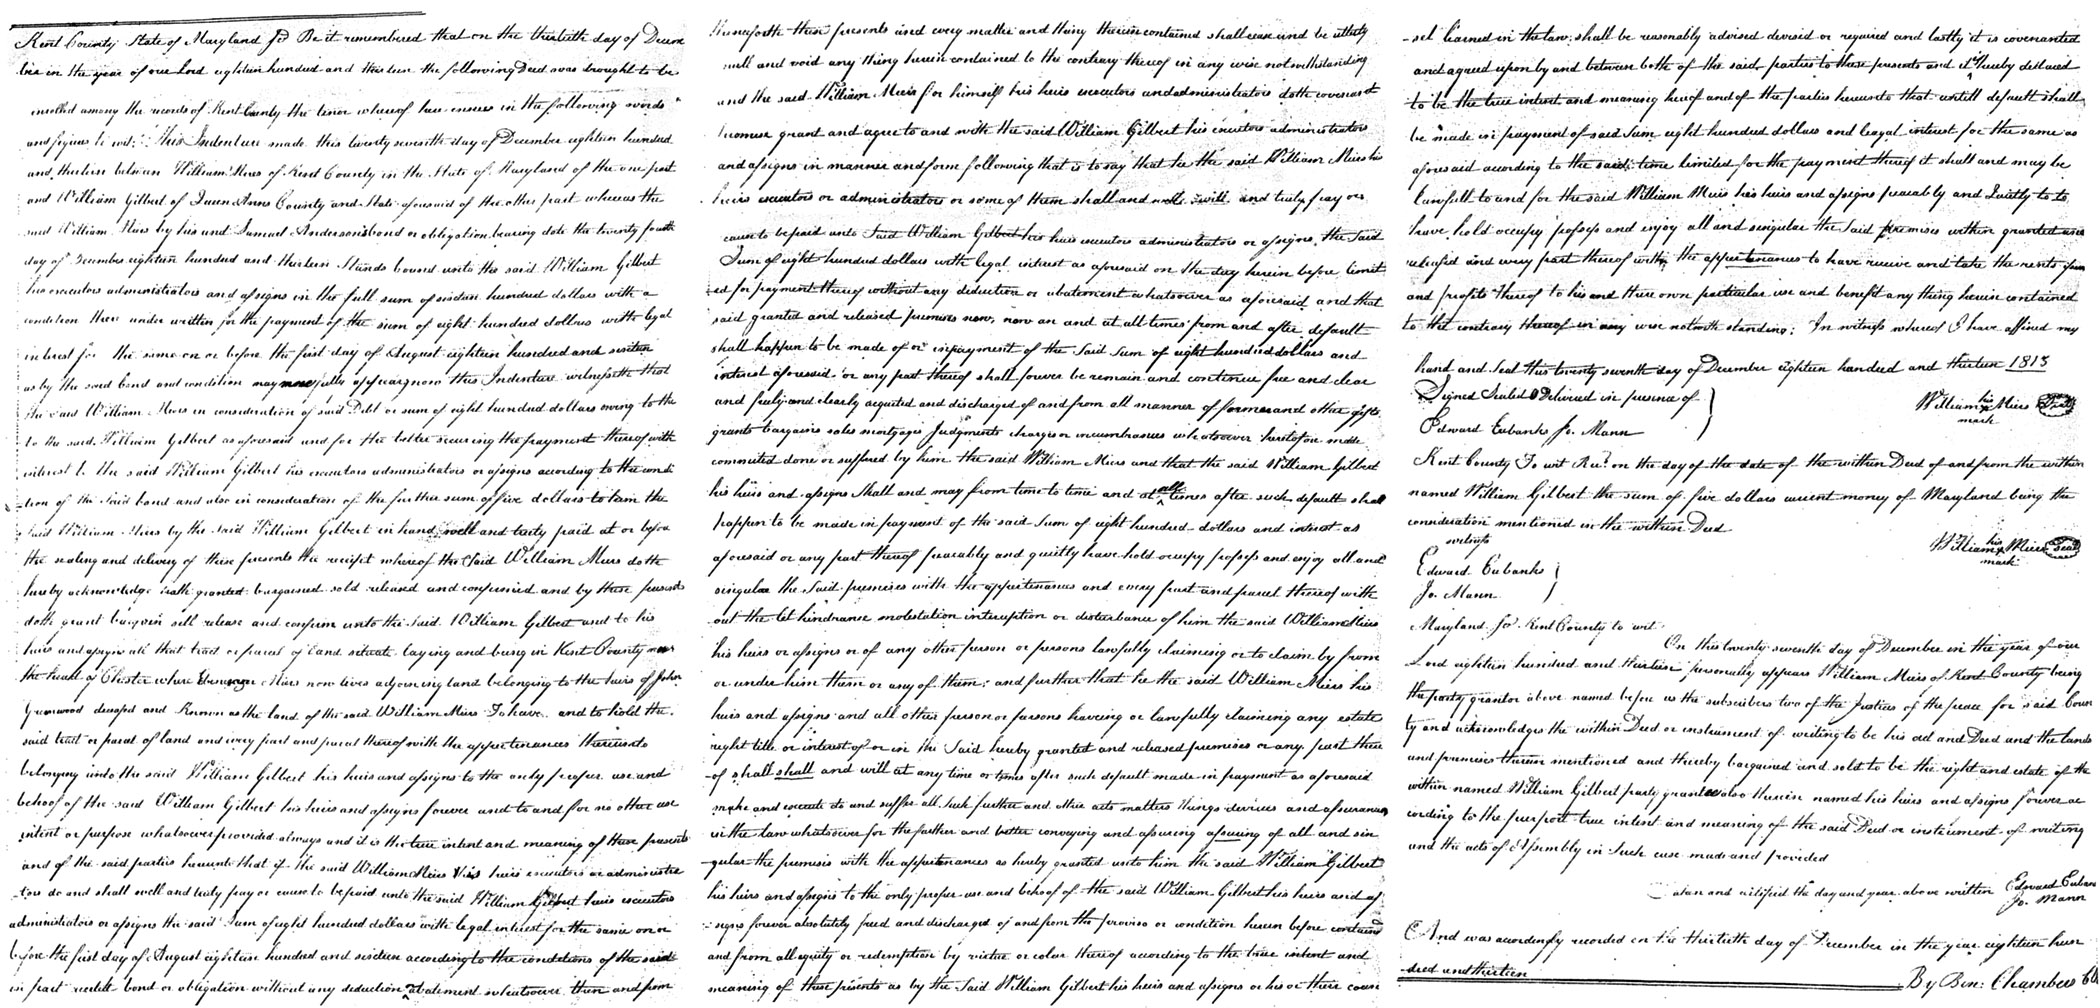 Kent County State of Maryland Sct Be it remembered that on the thirtieth day of Decem
ber in the year of our Lord eighteen hundred and thirteen the following Deed was brought to be
enrolled among the records of Kent County the tenor whereof here ensues in the following words
and figures to wit; This Indenture made this twenty seventh day of December eighteen hundred
and thirteen between William Miers of Kent County in the State of Maryland of the one part
and William Gilbert of Queen Anns County and State aforesaid of the other part whereas the
said William Miers by his and Samuel Andersons bond or obligation bearing date the twenty fourth
day of December eighteen hundred and thirteen Stands bound unto the said William Gilbert
his executors administrators and assigns in the full sum of sixteen hundred dollars with a
condition there under written for the payment of the sum of eight hundred dollars with legal
interest for the same on or before the first day of August eighteen hundred and sixteen
as by the said bond and condition may more fully appear now this Indenture witnesseth that
the said William Miers in consideration of said Debt or sum of eight hundred dollars owing to the
to the said William Gilbert as aforesaid and for the better securing the payment thereof with
interest to the said William Gilbert his executors administrators or assigns according to the condi
tion of the said bond and also in consideration of the further sum of five dollars to him the
said William Miers by the said William Gilbert in hand well and truly paid at or before
the sealing and delivery of these presents the receipt whereof the said William Miers doth
hereby acknowledge hath granted bargained sold released and confirmed and by these presents
doth grant bargain sell release and confirm unto the said William Gilbert and to his
heirs and assigns all that tract or parcel of land situate laying and being in Kent County near
the head of Chester where Ebenezer Miers now lives adjoining land belonging to the heirs of John
Greenwood deceased and Known as the land of the said William Miers To have and to hold the
said tract or parcel of land and every part and parcel thereof with the appertenances thereunto
belonging unto the said William Gilbert his heirs and assigns to the only proper use and
behoof of the said William Gilbert his heirs and assigns forever and to and for no other use
intent or purpose whatsoever provided always and it is the true intent and meaning of these presents
and of the said parties hereunto that if the said William Miers his heirs executors or administra
-tors do and shall well and truly pay or cause to be paid unto the said William Gilbert his executors
administrators or assigns the said Sum of eight hundred dollars with legal interest for the same on or
before the first day of August eighteen hundred and sixteen according to the conditions of the said
in part recited bond or obligation without any deduction abatement whatsoever then and from
thenceforth these presents and every matter and thing therein contained shall cease and be utterly
null and void any thing herein contained to the contrary thereof in any wise notwithstanding
and the said William Miers for himself his heirs executors and administrators doth covenant
promise grant and agree to and with the said William Gilbert his executors administrators
and assigns in manner and form following that is to say that he the said William Miers his
heirs executors or administrators or some of them shall and will and truly pay or
cause to be paid unto Said William Gilbert his heirs executors administrators or assigns the Said
Sum of eight hundred dollars with legal interest as aforesaid on the day herein before limit
-ed for payment thereof without any deduction or abatement whatsoever as aforesaid and that
said granted and released premises now, now an and at all times from and after default
shall happen to be made of or in payment of the Said Sum of eight hundred dollars and
interest aforesaid or any part thereof shall forever be remain and continue free and clear
and freely and clearly acquited and discharged of and from all manner of former and other gifts
grants bargains sales mortgages Judgments charges or incumbrances whatsoever heretofore made
committed done or suffered by him the said William Miers and that the said William Gilbert
his heirs and assigns Shall and may from time to time and at all times after such default shall
happen to be made in payment of the said Sum of eight hundred dollars and interest as
aforesaid or any part thereof peacably and quietly have hold occupy possess and enjoy all and
singular the Said premises with the appertenances and every part and parcel thereof with
out the let hindranse molestation interuption or disturbance of him the said William Miers
his heirs or assigns or of any other person or persons lawfully claiming or to claim by from
or under him them or any of them; and further that he the said William Miers his
heirs and assigns and all other person or persons haveing or lawfully claiming any estate
right title or interest of or in the Said hereby granted and released premises or any part there
-of shall shall and will at any time or times after such default made in payment as aforesaid
make and execute do and suffer all such further and other acts matters things devices and assurances
in the law whatsoever for the further and better conveying and assuring assuring of all and sin
-gular the premises with the appertenances as hereby granted unto him the said William Gilbert
his heirs and assigns to the only proper use and behoof of the said William Gilbert his heirs and as
-signs forever absolutely freed and discharged of and from the proviso or condition herein before contained
and from all equity or redemption by virtue or colour thereof according to the true intent and
meaning of these presents as by the Said William Gilbert his heirs and assigns or his or their coun
-sel learned in the law; shall be reasonably advised devised or required and lastly it is covenanted
and agreed upon by and between both of the said parties to these presents and it is hereby declared
to be the true intent and meaning hereof and of the parties hereunto that untill default shall
be made in payment of said Sum eight hundred dollars and leagal interest for the same as
aforesaid acording to the said time limited for the payment thereof it shall and may be
lawfull to and for the said William Miers his heirs and assigns peacably and Quietly to to
have hold occupy possess and enjoy all and singular the Said premises within granted and
released and every part thereof with the appertenances to have receive and take the rents issues
and profits thereof to his and there own particular use and benefit any thing herein contained
to the contrary thereof in any wise notwith standing; In witness whereof I have affixed my
hand and Seal this twenty seventh day of December eighteen hundred and thirteen 1813
Signed Sealed & Delivered in presence of
William his x mark Miers Seal
Edward Eubanks Jo. Mann
Kent County To wit Recd. on the day of the date of the within Deed of and from the within
named William Gilbert the sum of five dollars current money of Maryland being the
consideration mentioned in the within Deed
witness
William his x mark Miers Seal
Edward Eubanks
Jo. Mann
Maryland Sct Kent County to wit
On this twenty seventh day of December in the year of our
Lord eighteen hundred and thirteen personally appears William Miers of Kent County being
the party grantor above named before us the subscribers two of the Justices of the peace for said Coun
ty and acknowledges the within Deed or instrument of writing to be his act and Deed and the lands
and premises therein mentioned and thereby bargained and sold to be the right and estate of the
within named William Gilbert party grantee also therein named his heirs and assigns forever ac
cording to the purport true intent and meaning of the said Deed or instrument of writing
and the acts of Assembly in Such case made and provided
Taken and certified the day and year above written Edward Eubanks
Jo. Mann
And was accordingly recorded on the thirtieth day of December in the year eighteen hun
-dred and thirteen
By Ben: Chambers Clk